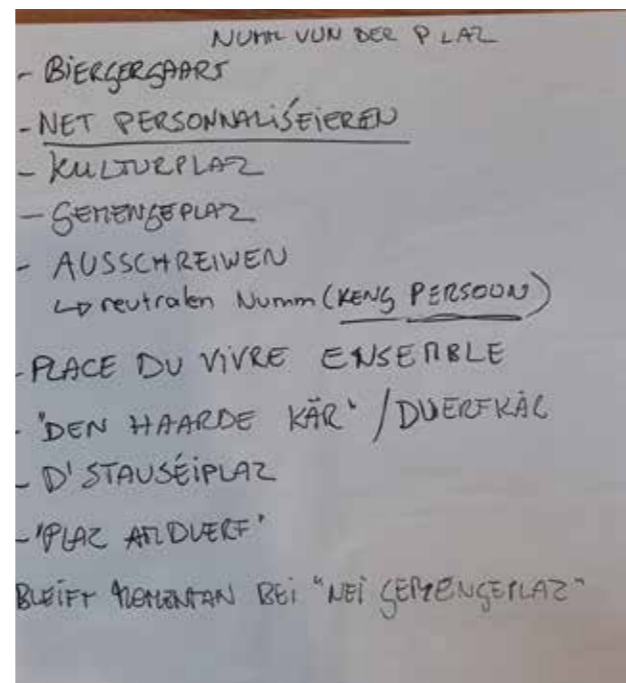 NUMM VUN DER PLAZ
- BIERGERGAART
- NET PERSONNALISÉIEREN
- KULTURPLAZ
- GEMENGEPLAZ
- AUSSCHREIWEN
↳ neutralen Numm (KENG PERSOUN)
- PLACE DU VIVRE ENSEMBLE
- 'DEN HAARDE KÄR' / DUERFKÄR
- D'STAUSÉIPLAZ
- 'PLAZ AM DUERF'
BLEIFT MOMENTAN BEI "NEI GEMENGEPLAZ"